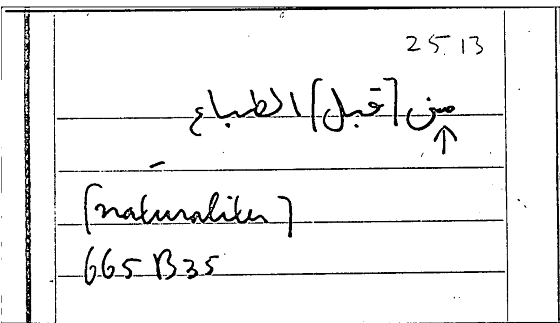 25.13
من [قبل] الطباع
↑
[naturaliter]
665 B35